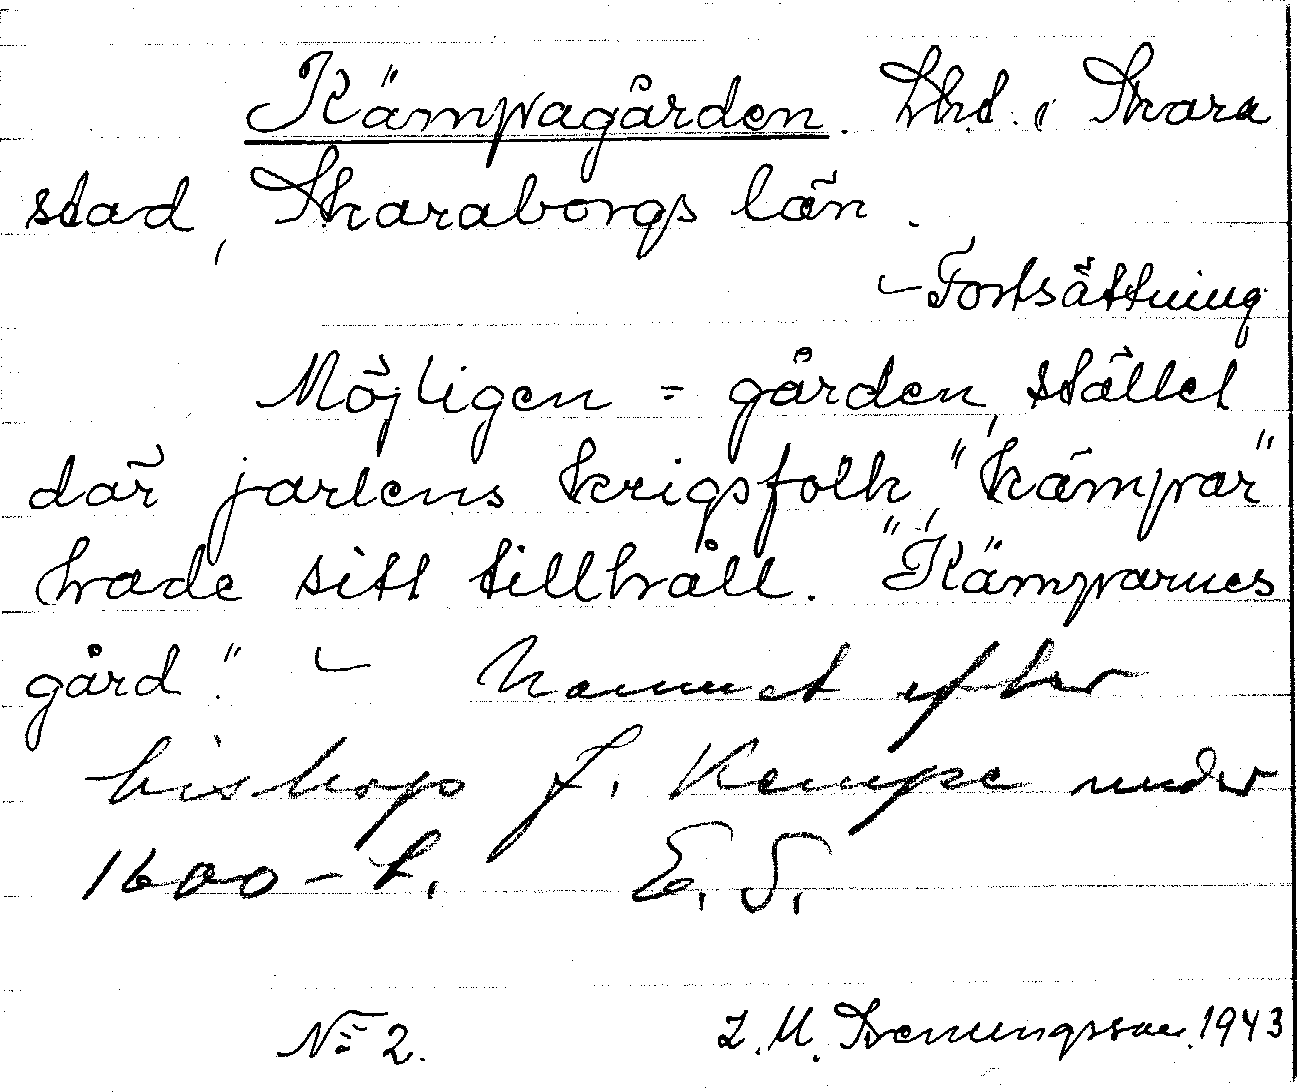 Kämpagården. Skd. i Skara
stad, Skaraborgs län.
- Fortsättning
Möjligen = gården, stället
där jarlens krigsfolk, "kämpar"
hade sitt tillhåll. "Kämparnes
gård." - Namnet efter
biskop J. Kempe under
1600-t. E. S.
No 2. I. M. Svenungsson. 1943